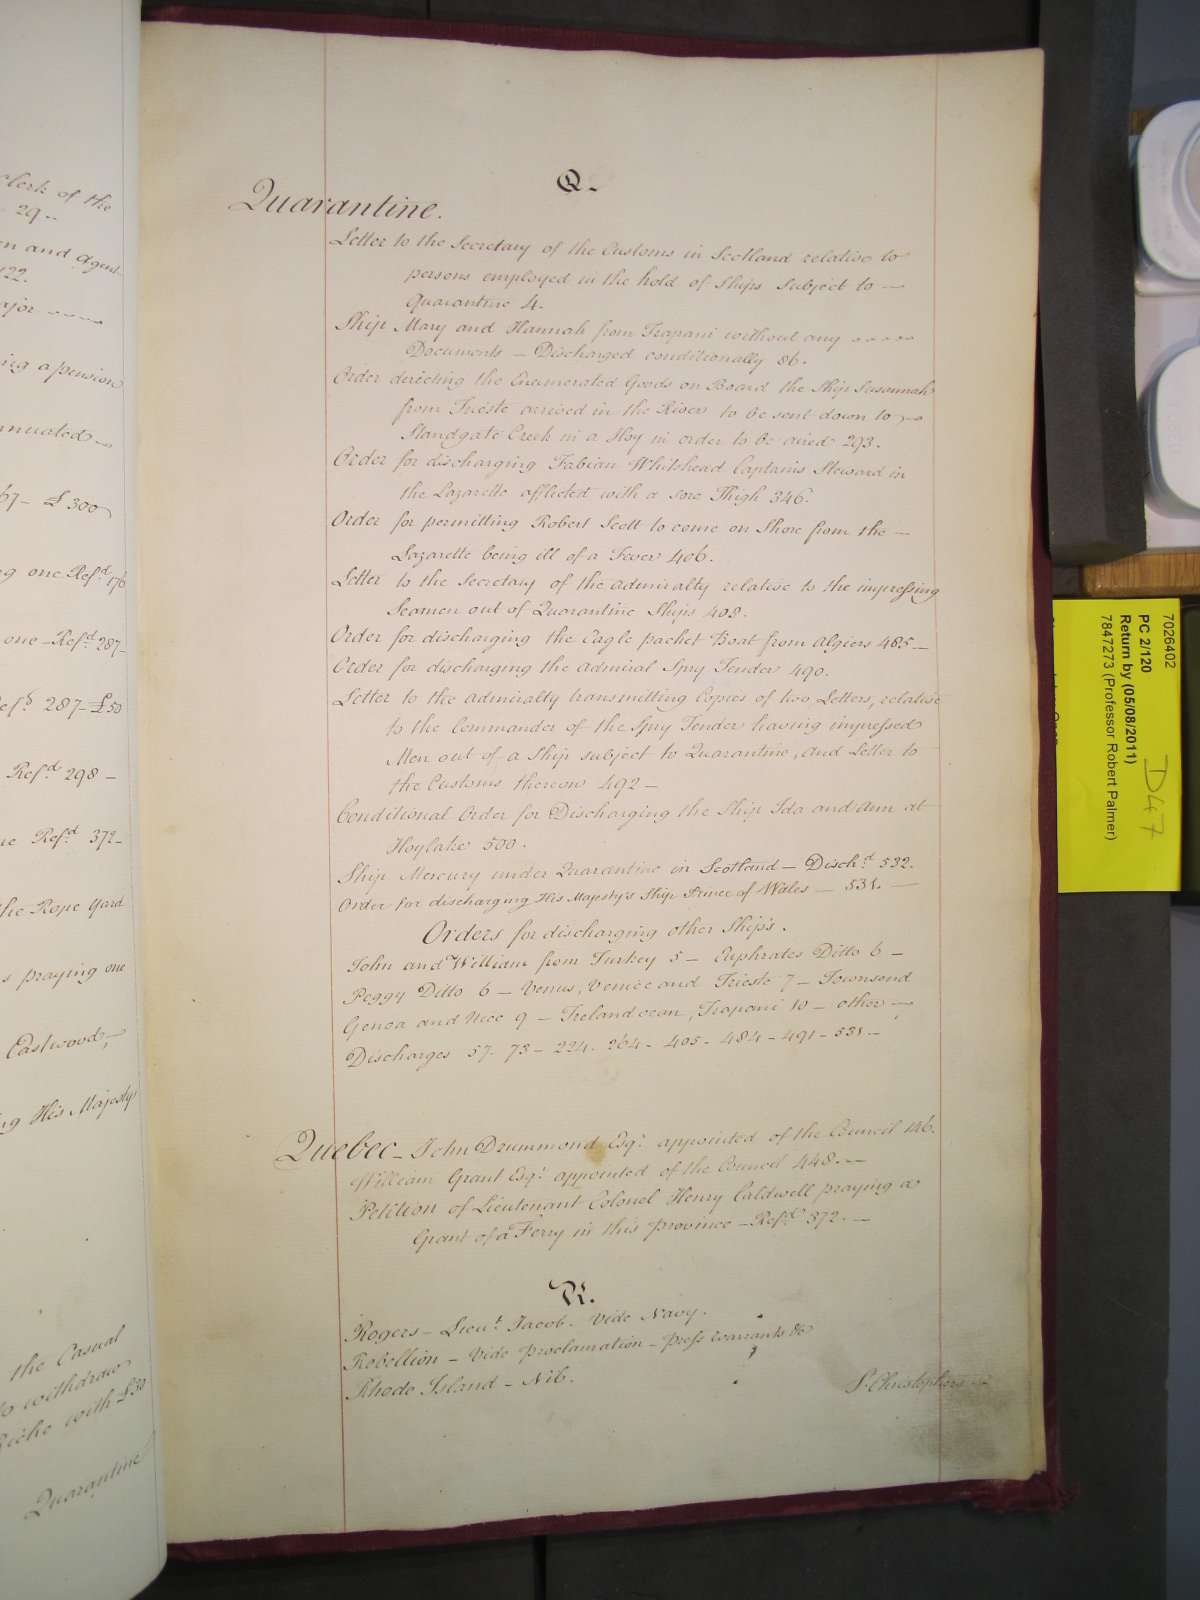 clerk of the
29 --
and Agent
122.
ajor ----
ing a pension
67 - £300
one Ref.d 176
one - Ref.d 287 -
Ref.d 287 - £50
Ref.d 298 -
Ref.d 372 -
the Rope Yard
s praying one
Eastwood;
His Majestys
the Casual
to withdraw
with £50
Quarantine
Q.
Quarantine.
Letter to the Secretary of the Customs in Scotland relative to
persons employed in the hold of Ships Subject to —
Quarantine 4.
Ship Mary and Hannah from Trapani without any
Documents — Discharged conditionally 86.
Order directing the Enumerated Goods on Board the Ship Susannah
from Trieste arrived in the River to be sent down to —
Standgate Creek in a Hoy in order to be aired 293.
Order for discharging Fabian Whitshead Captains Steward in
the Lazarette afflicted with a sore Thigh 346.
Order for permitting Robert Scott to come on Shore from the —
Lazarette being ill of a Fever 406.
Letter to the Secretary of the Admiralty relative to the impressing
Seamen out of Quarantine Ships 408.
Order for discharging the Eagle packet Boat from Algiers 485. —
Order for discharging the Admiral Spry Tender 490.
Letter to the Admiralty transmitting Copies of two Letters, relative
to the Commander of the Spry Tender having impressed
Men out of a Ship subject to Quarantine, and Letter to
the Customs thereon 492 —
Conditional Order for Discharging the Ship Ida and Ann at
Hoylake 500.
Ship Mercury under Quarantine in Scotland — Disch.d 532.
Order for discharging His Majesty's Ship Prince of Wales — 531. —
Orders for discharging other Ships.
John and William from Turkey 5 — Euphrates Ditto 6 —
Peggy Ditto 6 — Venus, Venice and Trieste 7 — Townsend
Genoa and Nice 9 — Trapani 10 — other —
Discharges 57. 73 — 224. 264 — 405 — 484 — 491 — 531. —
Quebec — John Drummond Esq.r appointed of the Council 146.
William Grant Esq.r appointed of the Council 448. —
Petition of Lieutenant Colonel Henry Caldwell praying a
Grant of a Ferry in this province — Ref.d 372. —
R.
Rogers — Lieu.t Jacob. Vide Navy.
Rebellion — Vide proclamation — press warrants &c
Rhode Island — Nil.
S.t Christophers
7026402
PC 2/120
Return by (05/08/2011)
7847273 (Professor Robert Palmer)
D47